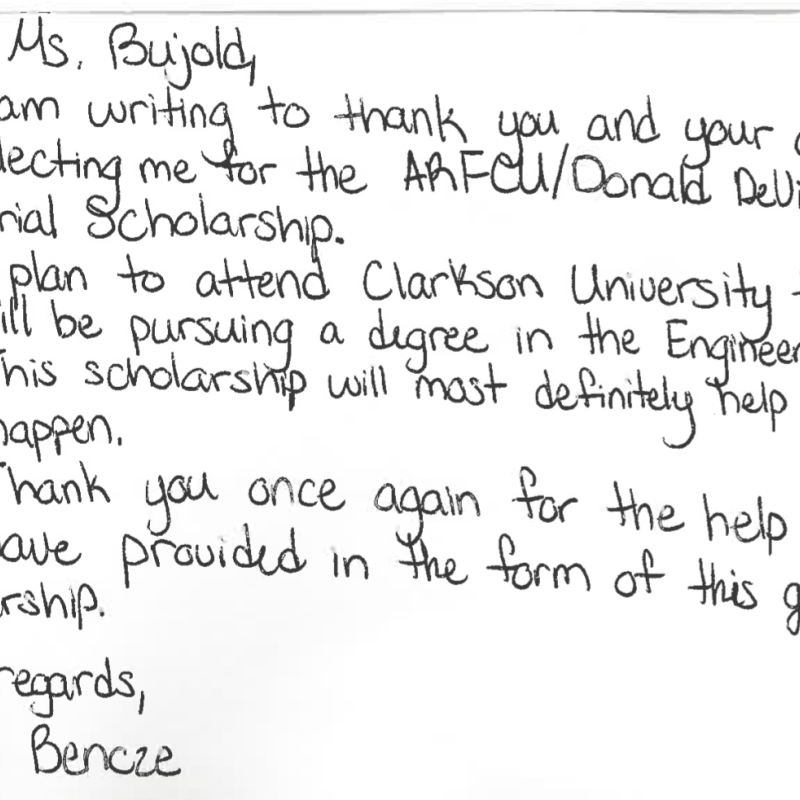 Ms. Bujold,
am writing to thank you and your
lecting me for the ARFCU/Donald DeVi
rial Scholarship.
plan to attend Clarkson University
ill be pursuing a degree in the Engineer
This scholarship will most definitely help
happen.
Thank you once again for the help
ave provided in the form of this g
rship.
regards,
Bencze